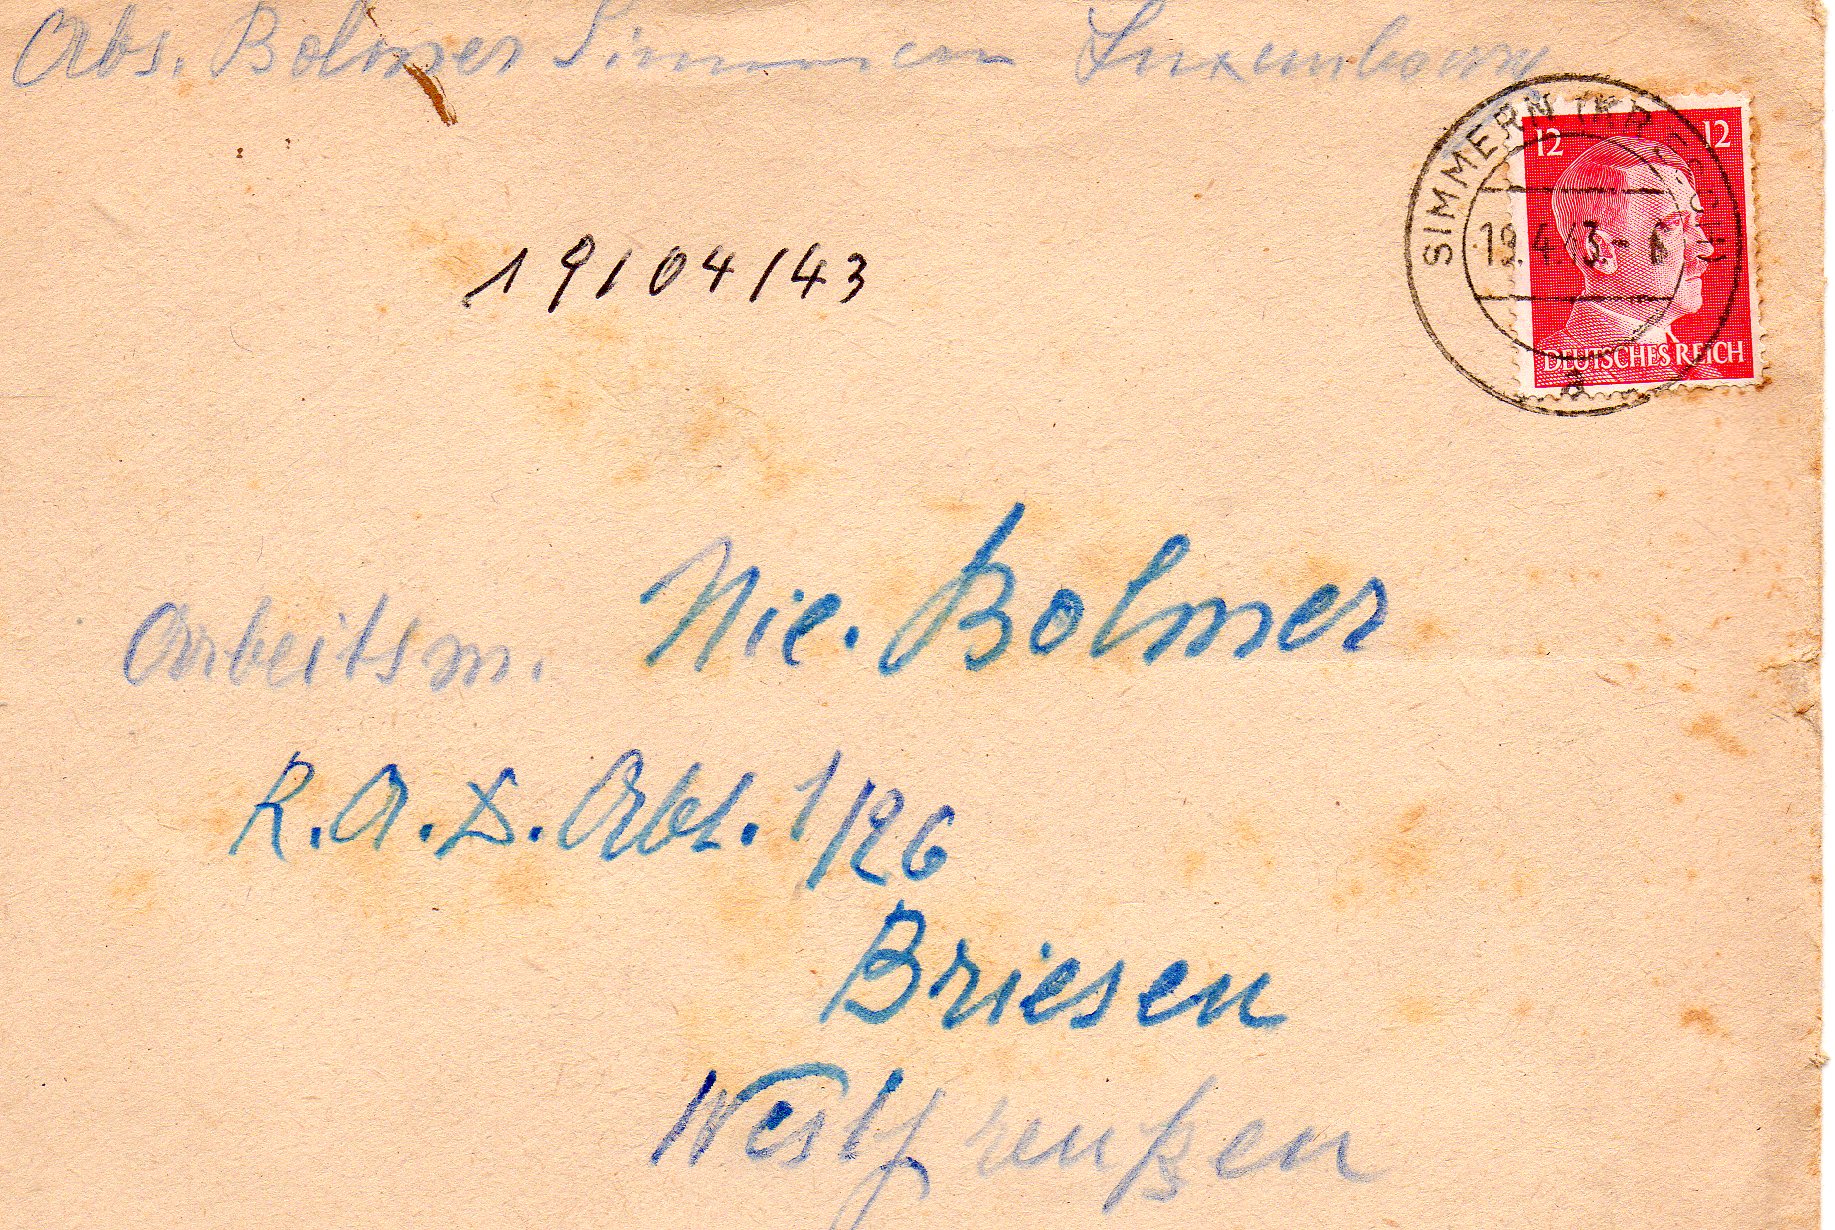 Abs. Bolmer Simmern Luxembourg
SIMMERN (KR
19.4.43.-
12 12
DEUTSCHES REICH
a
19/04/43
Arbeitsm. Nic. Bolmer
R.A.D. Abt. 1/26
Briesen
Westpreußen